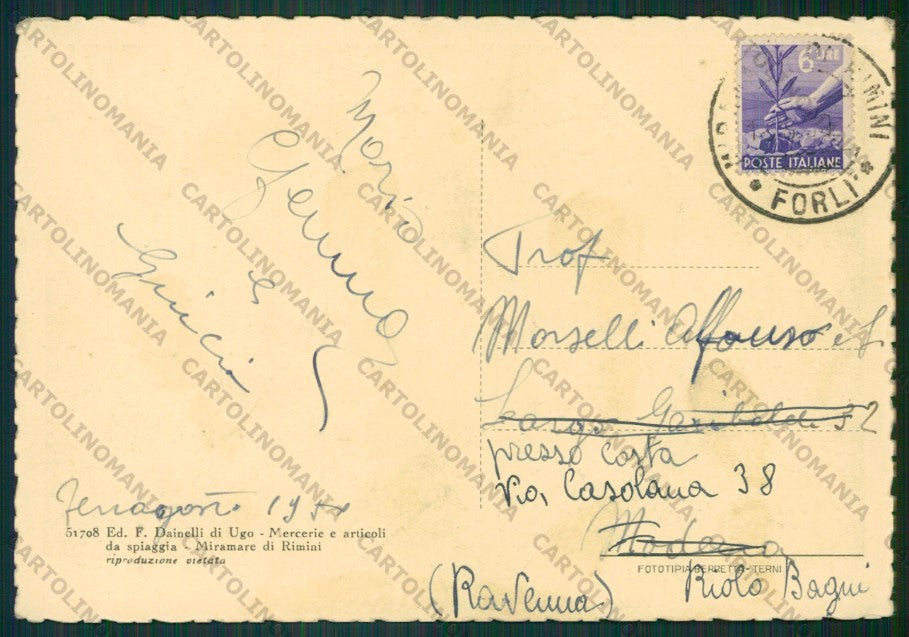 6 LIRE
POSTE ITALIANE
RIMINI
* FORLI *
Prof
Morselli Alfonso
Largo Garibaldi 52
presso Costa
Via Casolana 38
Modena
Riolo Bagni
(Ravenna)
Maria
Gemma
e
Ferragosto 19
51708 Ed. F. Dainelli di Ugo - Mercerie e articoli
da spiaggia - Miramare di Rimini
riproduzione vietata
FOTOTIPIA BERRETTA - TERNI
CARTOLINOMANIA